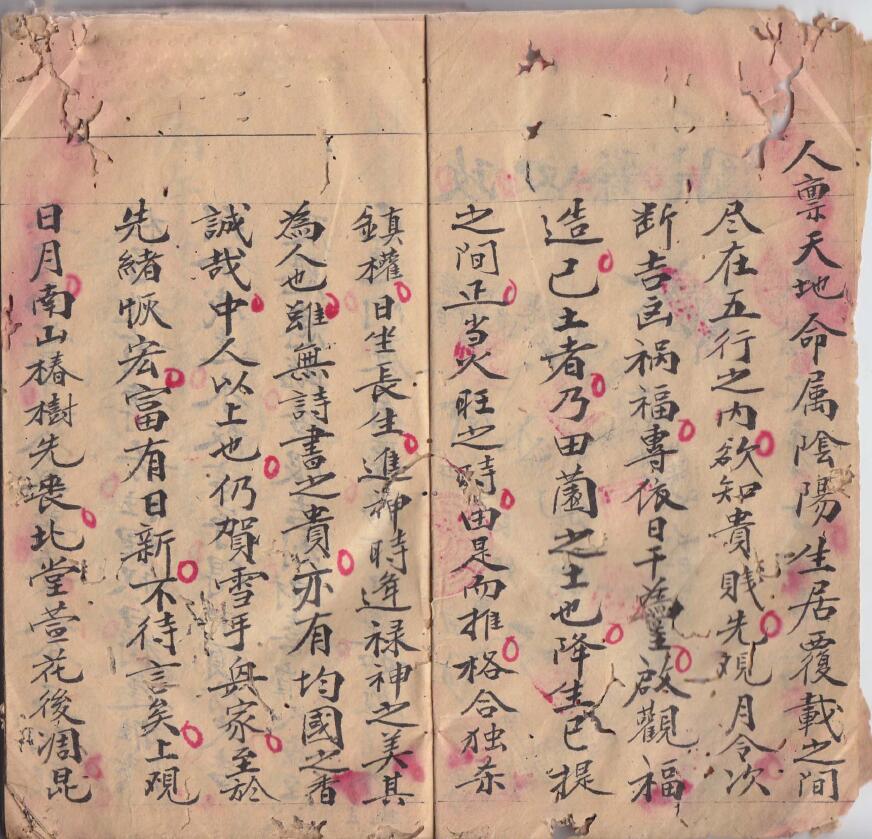 人禀天地命属陰陽生居覆載之间
尽在五行之内欲知貴賎先观月令次
断吉凶祸福專依日干 啟觀福
造己土者乃田薗之土也降生巳提
之间正当火旺之時由是而推格合独
鎮權日坐長生進神時逢禄神之美其
為人也雖無詩書之貴亦有均國之香
誠哉中人以上也仍賀雪手興家至於
先緒恢宏富有日新不待言矣上观
日月南山椿樹先喪北堂萱花後凋昆